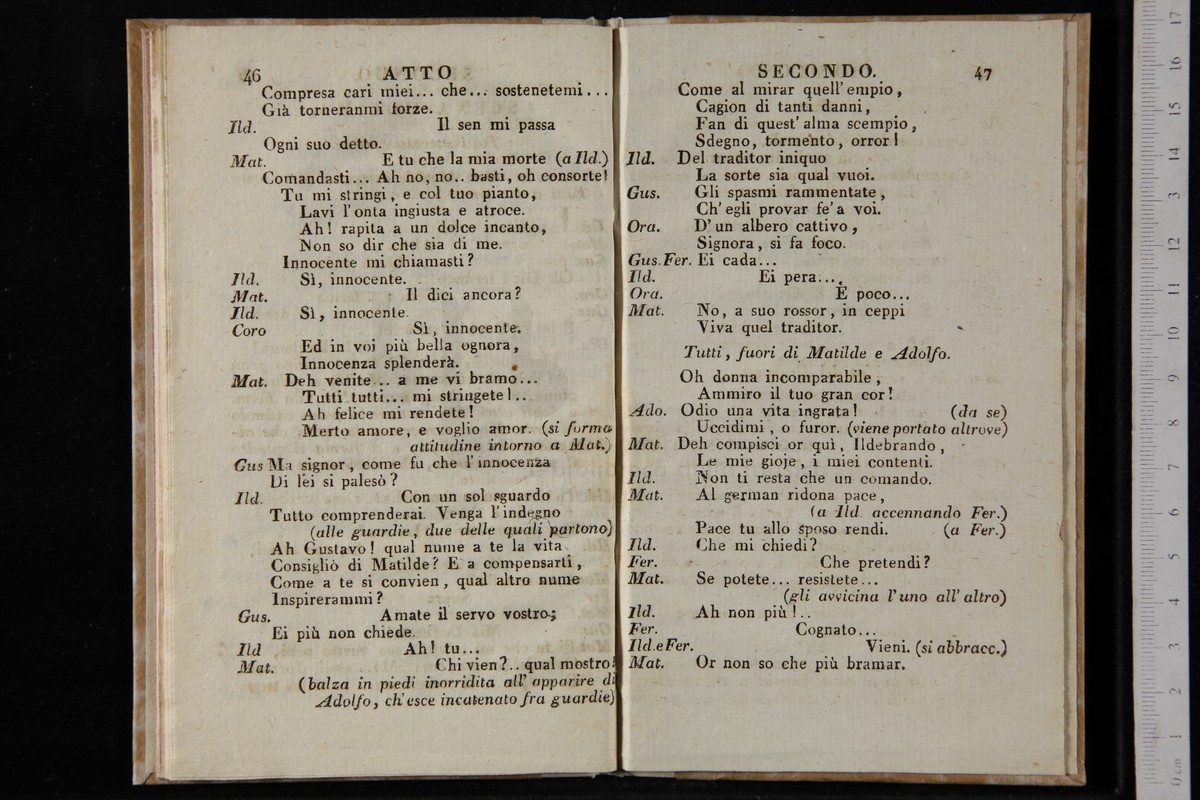 46 ATTO
Compresa cari miei... che... sostenetemi...
Già torneranmi forze.
Ild. Il sen mi passa
Ogni suo detto.
Mat. E tu che la mia morte (a Ild.)
Comandasti... Ah no, no.. basti, oh consorte!
Tu mi stringi, e col tuo pianto,
Lavi l'onta ingiusta e atroce.
Ah! rapita a un dolce incanto,
Non so dir che sia di me.
Innocente mi chiamasti?
Ild. Sì, innocente.
Mat. Il dici ancora?
Ild. Sì, innocente.
Coro Sì, innocente.
Ed in voi più bella ognora,
Innocenza splenderà.
Mat. Deh venite .. a me vi bramo...
Tutti tutti... mi stringete!..
Ah felice mi rendete!
Merto amore, e voglio amor. (si forma
attitudine intorno a Mat.)
Gus Ma signor, come fu che l'innocenza
Di lei si palesò?
Ild. Con un sol sguardo
Tutto comprenderai. Venga l'indegno
(alle guardie, due delle quali partono)
Ah Gustavo! qual nume a te la vita
Consigliò di Matilde? E a compensarti,
Come a te si convien, qual altro nume
Inspirerammi?
Gus. Amate il servo vostro;
Ei più non chiede.
Ild Ah! tu...
Mat. Chi vien?.. qual mostro!
(balza in piedi inorridita all' apparire di
Adolfo, ch'esce incatenato fra guardie)
SECONDO. 47
Come al mirar quell' empio,
Cagion di tanti danni,
Fan di quest' alma scempio,
Sdegno, tormento, orror!
Ild. Del traditor iniquo
La sorte sia qual vuoi.
Gus. Gli spasmi rammentate,
Ch' egli provar fe' a voi.
Ora. D' un albero cattivo,
Signora, si fa foco.
Gus. Fer. Ei cada...
Ild. Ei pera....
Ora. E poco...
Mat. No, a suo rossor, in ceppi
Viva quel traditor.
Tutti, fuori di Matilde e Adolfo.
Oh donna incomparabile,
Ammiro il tuo gran cor!
Ado. Odio una vita ingrata! (da se)
Uccidimi, o furor. (viene portato altrove)
Mat. Deh compisci or quì, Ildebrando,
Le mie gioje, i miei contenti.
Ild. Non ti resta che un comando.
Mat. Al german ridona pace,
(a Ild. accennando Fer.)
Pace tu allo sposo rendi. (a Fer.)
Ild. Che mi chiedi?
Fer. Che pretendi?
Mat. Se potete... resistete...
(gli avvicina l'uno all' altro)
Ild. Ah non più!..
Fer. Cognato...
Ild.eFer. Vieni. (si abbracc.)
Mat. Or non so che più bramar.
0 cm 1 2 3 4 5 6 7 8 9 10 11 12 13 14 15 16 17